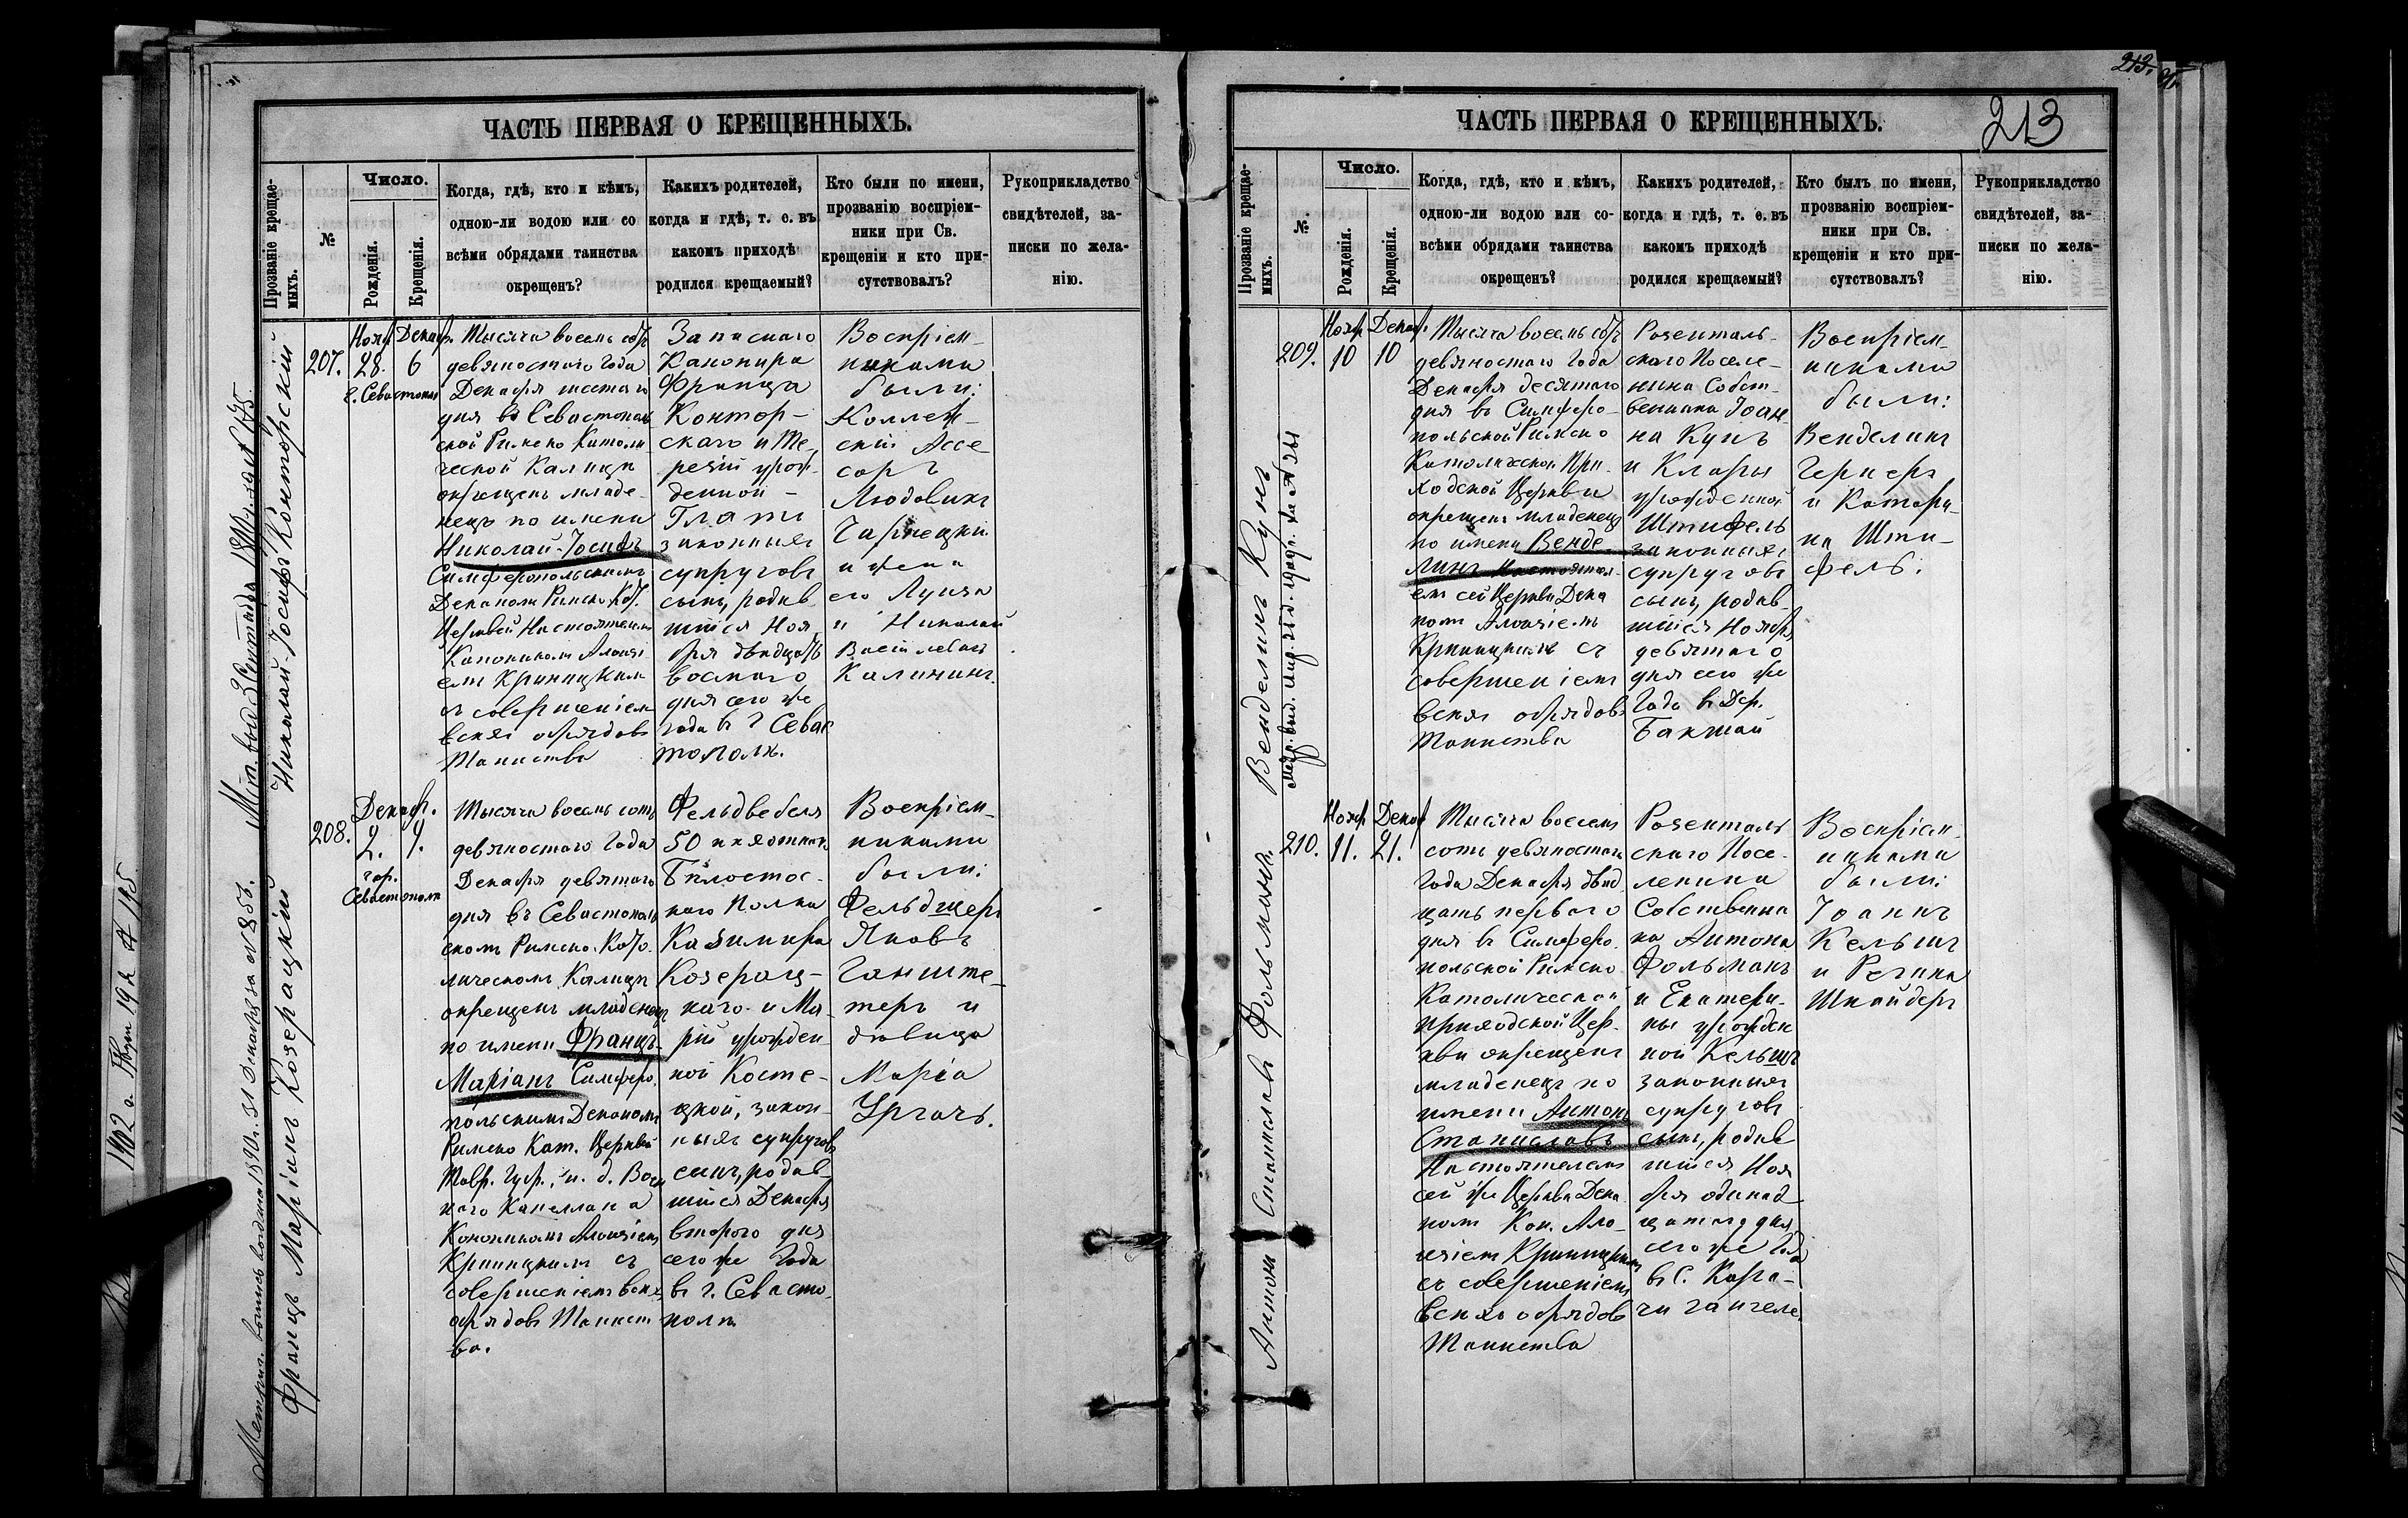 213.
ЧАСТЬ ПЕРВАЯ О КРЕЩЕННЫХЪ.
Прозваніе крещаемыхъ.
№
Число.
Рожденія.
Крещенія.
Когда, гдѣ, кто и кѣмъ,
одною-ли водою или со
всѣми обрядами таинства
окрещенъ?
Какихъ родителей,
когда и гдѣ, т. е. въ
какомъ приходѣ
родился крещаемый?
Кто были по имени,
прозванію воспріем-
ники при Св.
крещеніи и кто при-
сутствовалъ?
Рукоприкладство
свидѣтелей, за-
писки по жела-
нію.
Николай-Іосифъ Конторскій
207.
Нояб.
28.
Декаб.
6
г. Севастополь
Тысяча восемь сотъ
девяностаго Года
Декабря шестаго
дня въ Севастополь
ской Римско Католи
ческой Калиции
окрещенъ младе-
нецъ по имени
Николай-Іосифъ
Симферопольскимъ
Деканомъ Римско Кат.
Церквей Настоятелемъ
Каноникомъ Алоизі-
емъ Криницкимъ
съ совершеніемъ
всѣхъ обрядовъ
Таинства
Запаснаго
Канонира
Франца
Контор-
скаго и Те-
резіи урож-
денной -
Глатъ
законныхъ
супруговъ
сынъ, родив
шійся Ноя
бря двадцать
восмаго
дня сего же
года въ г Севас
тополѣ.
Воспріем-
никами
были:
Коллеж-
скій Ассе
соръ
Людовикъ
Чарнецкій
и жена
его Луиза
и Николай
Васильевъ
Калининъ.
Францъ Маріанъ Козерацкій
208.
Декаб.
2.
9.
гор.
Севастополь
Тысяча восемь сотъ
девяностаго Года
Декабря девятаго
дня въ Севастополь
скомъ Римско. Като.
лическомъ Калиции
окрещенъ младенецъ
по имени Францъ-
Маріанъ Симферо.
польскимъ Деканомъ
Римско Кат. Церквей
Тавр. Губ., и. д. Воен
наго Капеллана
Каноникомъ Алоизіемъ
Криницкимъ съ
совершеніемъ всѣхъ
обрядовъ Таинст
ва.
Фельдвебеля
50 пѣхотнаго
Бѣлостос-
каго Полка
Казимира
Козерац-
каго и Ма-
ріи урожден-
ной Косте-
цкой, закон-
ныхъ супруговъ
сынъ, родив-
шійся Декабря
втораго дня
сего же Года
въ г. Севасто
полѣ
Воспріем-
никами
были:
Фельдшеръ
Яковъ
Ганште-
теръ и
дѣвица
Марія
Ургачъ.
ЧАСТЬ ПЕРВАЯ О КРЕЩЕННЫХЪ.
213
Прозваніе крещаемыхъ.
№
Число.
Рожденія.
Крещенія.
Когда, гдѣ, кто и кѣмъ,
одною-ли водою или со-
всѣми обрядами таинства
окрещенъ?
Какихъ родителей,
когда и гдѣ, т. е. въ
какомъ приходѣ
родился крещаемый?
Кто былъ по имени,
прозванію воспріем-
ники при Св.
крещеніи и кто при-
сутствовалъ?
Рукоприкладство
свидѣтелей, за-
писки по жела-
нію.
Венделинъ Кунъ
209.
Нояб
10
Декаб.
10
Тысяча восемь сотъ
девяностаго Года
Декабря десятаго
дня въ Симферо-
польской Римско
Католической При-
ходской Церкви
окрещенъ младенецъ
по имени Венде-
линъ Настоятел-
емъ сей Церкви Дека
номъ Алоизіемъ
Криницкимъ съ
совершеніемъ
всѣхъ обрядовъ
Таинства
Розенталь-
скаго Поселе-
нина Собст-
венника Іоан
на Кунъ
и Клары
урожденной
Штифель
законныхъ
супруговъ
сынъ, родив-
шійся Ноября
девятаго
дня сего же
Года въ Дер.
Бакшай
Воспріем-
никами
были:
Венделинъ
Гернеръ
и Катари-
на Шти-
фель.
Антонъ Станиславъ Фольманъ.
210.
Нояб
11.
Декаб
21.
Тысяча восемь
сотъ девяностаго
Года Декабря двад
цать перваго
дня въ Симферо.
польской Римско
Католической
приходской Цер-
кви окрещенъ
младенецъ по
имени Антонъ
Станиславъ
Настоятелемъ
сей же Церкви Дека
номъ Кан. Ало-
изіемъ Криницкимъ
съ совершеніемъ
всѣхъ обрядовъ
Таинства
Розенталь
скаго Посе-
ленина
Собственни
ка Антона
Фольманъ
и Екатери-
ны урожден
ной Кельшъ
законныхъ
супруговъ
сынъ, родив
шійся Ноя
бря одинад
цатаго дня
сего же Года
въ С. Кара-
чи гангеле.
Воспріем-
никами
были:
Іоаннъ
Кельшъ
и Регина
Шнайдеръ